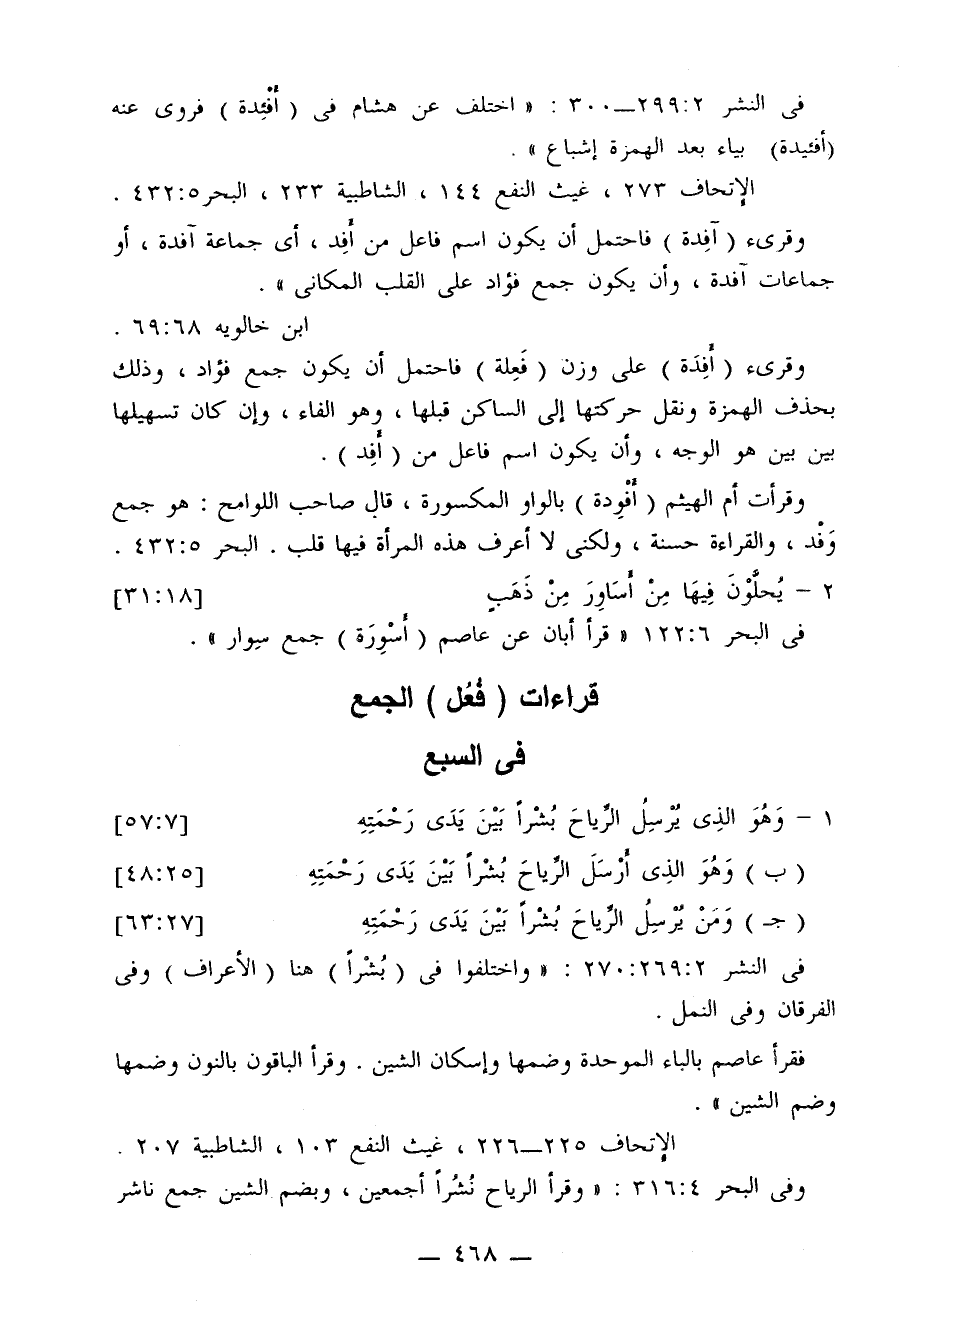 فى النشر ٢٩٩:٢ــ٣٠٠ : « اختلف عن هشام فى ( أَفْئِدة ) فروى عنه
(أفئيدة) بياء بعد الهمزة إشباع » .
الإتحاف ٢٧٣ ، غيث النفع ١٤٤ ، الشاطبية ٢٣٣ ، البحر٤٣٢:٥ .
وقرىء ( آفِدة ) فاحتمل أن يكون اسم فاعل من أَفِد ، أى جماعة آفدة ، أو
جماعات آفدة ، وأن يكون جمع فؤاد على القلب المكانى » .
ابن خالويه ٦٩:٦٨ .
وقرىء ( أَفِدَة ) على وزن ( فَعِلة ) فاحتمل أن يكون جمع فؤاد ، وذلك
بحذف الهمزة ونقل حركتها إلى الساكن قبلها ، وهو الفاء ، وإن كان تسهيلها
بين بين هو الوجه ، وأن يكون اسم فاعل من ( أَفِد ) .
وقرأت أم الهيثم ( أَفْوِدة ) بالواو المكسورة ، قال صاحب اللوامح : هو جمع
وَفْد ، والقراءة حسنة ، ولكنى لا أعرف هذه المرأة فيها قلب . البحر ٤٣٢:٥ .
٢ – يُحلَّوْنَ فِيهَا مِنْ أَسَاوِرَ مِنْ ذَهَبٍ [٣١:١٨]
فى البحر ١٢٢:٦ « قرأ أبان عن عاصم ( أَسْوِرَة ) جمع سِوار » .
قراءات ( فُعُل ) الجمع
فى السبع
١ – وَهُوَ الذِى يُرْسِلُ الرِّياحَ بُشْراً بَيْنَ يَدَى رَحْمَتِهِ [٥٧:٧]
( ب ) وَهُوَ الذِى أَرْسَلَ الرِّياحَ بُشْراً بَيْنَ يَدَى رَحْمَتِهِ [٤٨:٢٥]
( جـ ) وَمَنْ يُرْسِلُ الرِّياحَ بُشْراً بَيْنَ يَدَى رَحْمَتِهِ [٦٣:٢٧]
فى النشر ٢٧٠:٢٦٩:٢ : « واختلفوا فى ( بُشْراً ) هنا ( الأعراف ) وفى
الفرقان وفى النمل .
فقرأ عاصم بالباء الموحدة وضمها وإسكان الشين . وقرأ الباقون بالنون وضمها
وضم الشين » .
الإتحاف ٢٢٥ــ٢٢٦ ، غيث النفع ١٠٣ ، الشاطبية ٢٠٧ .
وفى البحر ٣١٦:٤ : « وقرأ الرياح نُشُراً أجمعين ، وبضم الشين جمع ناشر
— ٤٦٨ —